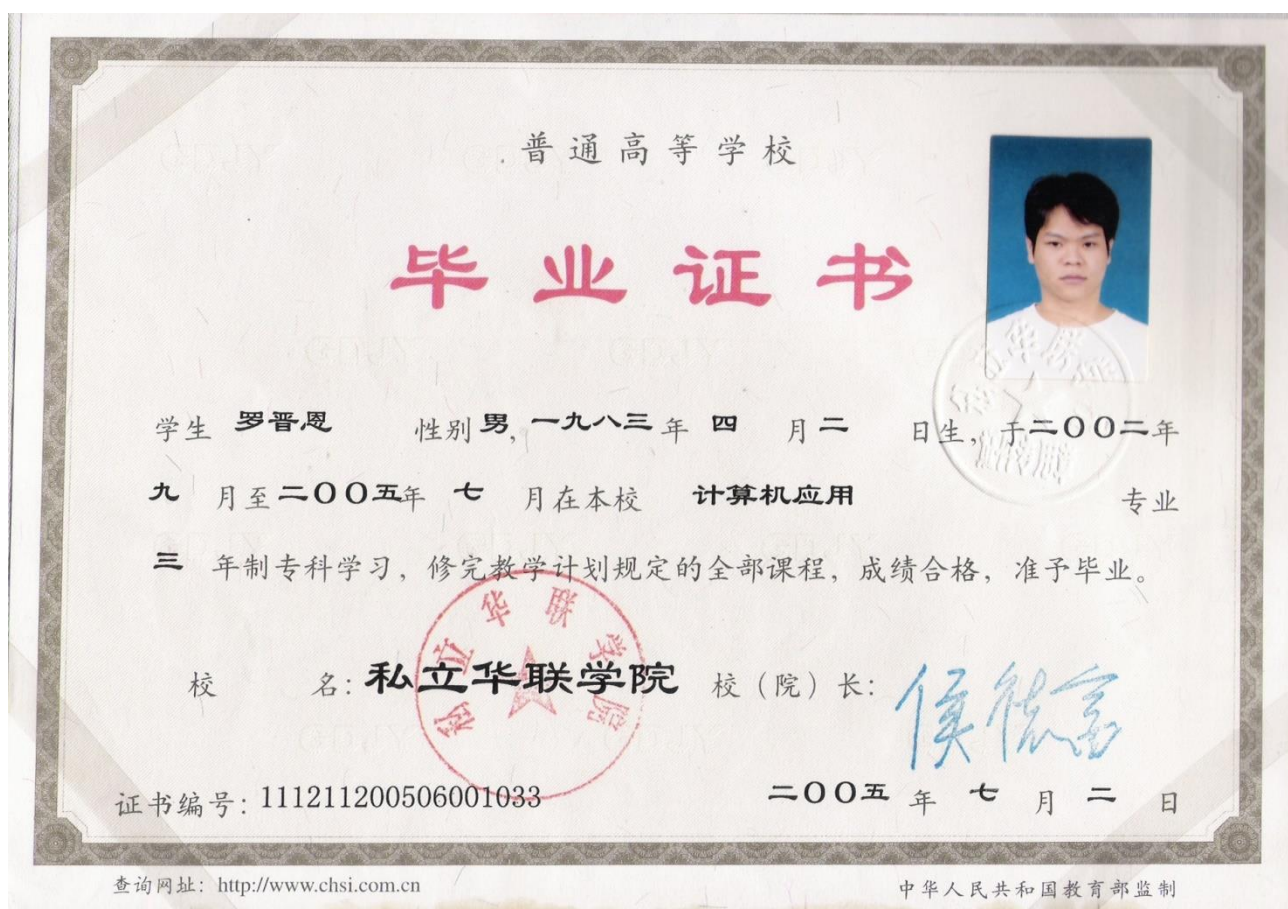 普通高等学校
毕业证书
学生 罗晋恩 性别 男, 一九八三 年 四 月 二 日生, 于 二〇〇二 年
九 月至 二〇〇五 年 七 月在本校 计算机应用 专业
三 年制专科学习, 修完教学计划规定的全部课程, 成绩合格, 准予毕业。
私立华联学院
校 名: 私立华联学院 校（院）长: 侯德富
证书编号: 111211200506001033 二〇〇五 年 七 月 二 日
查询网址: http://www.chsi.com.cn 中华人民共和国教育部监制